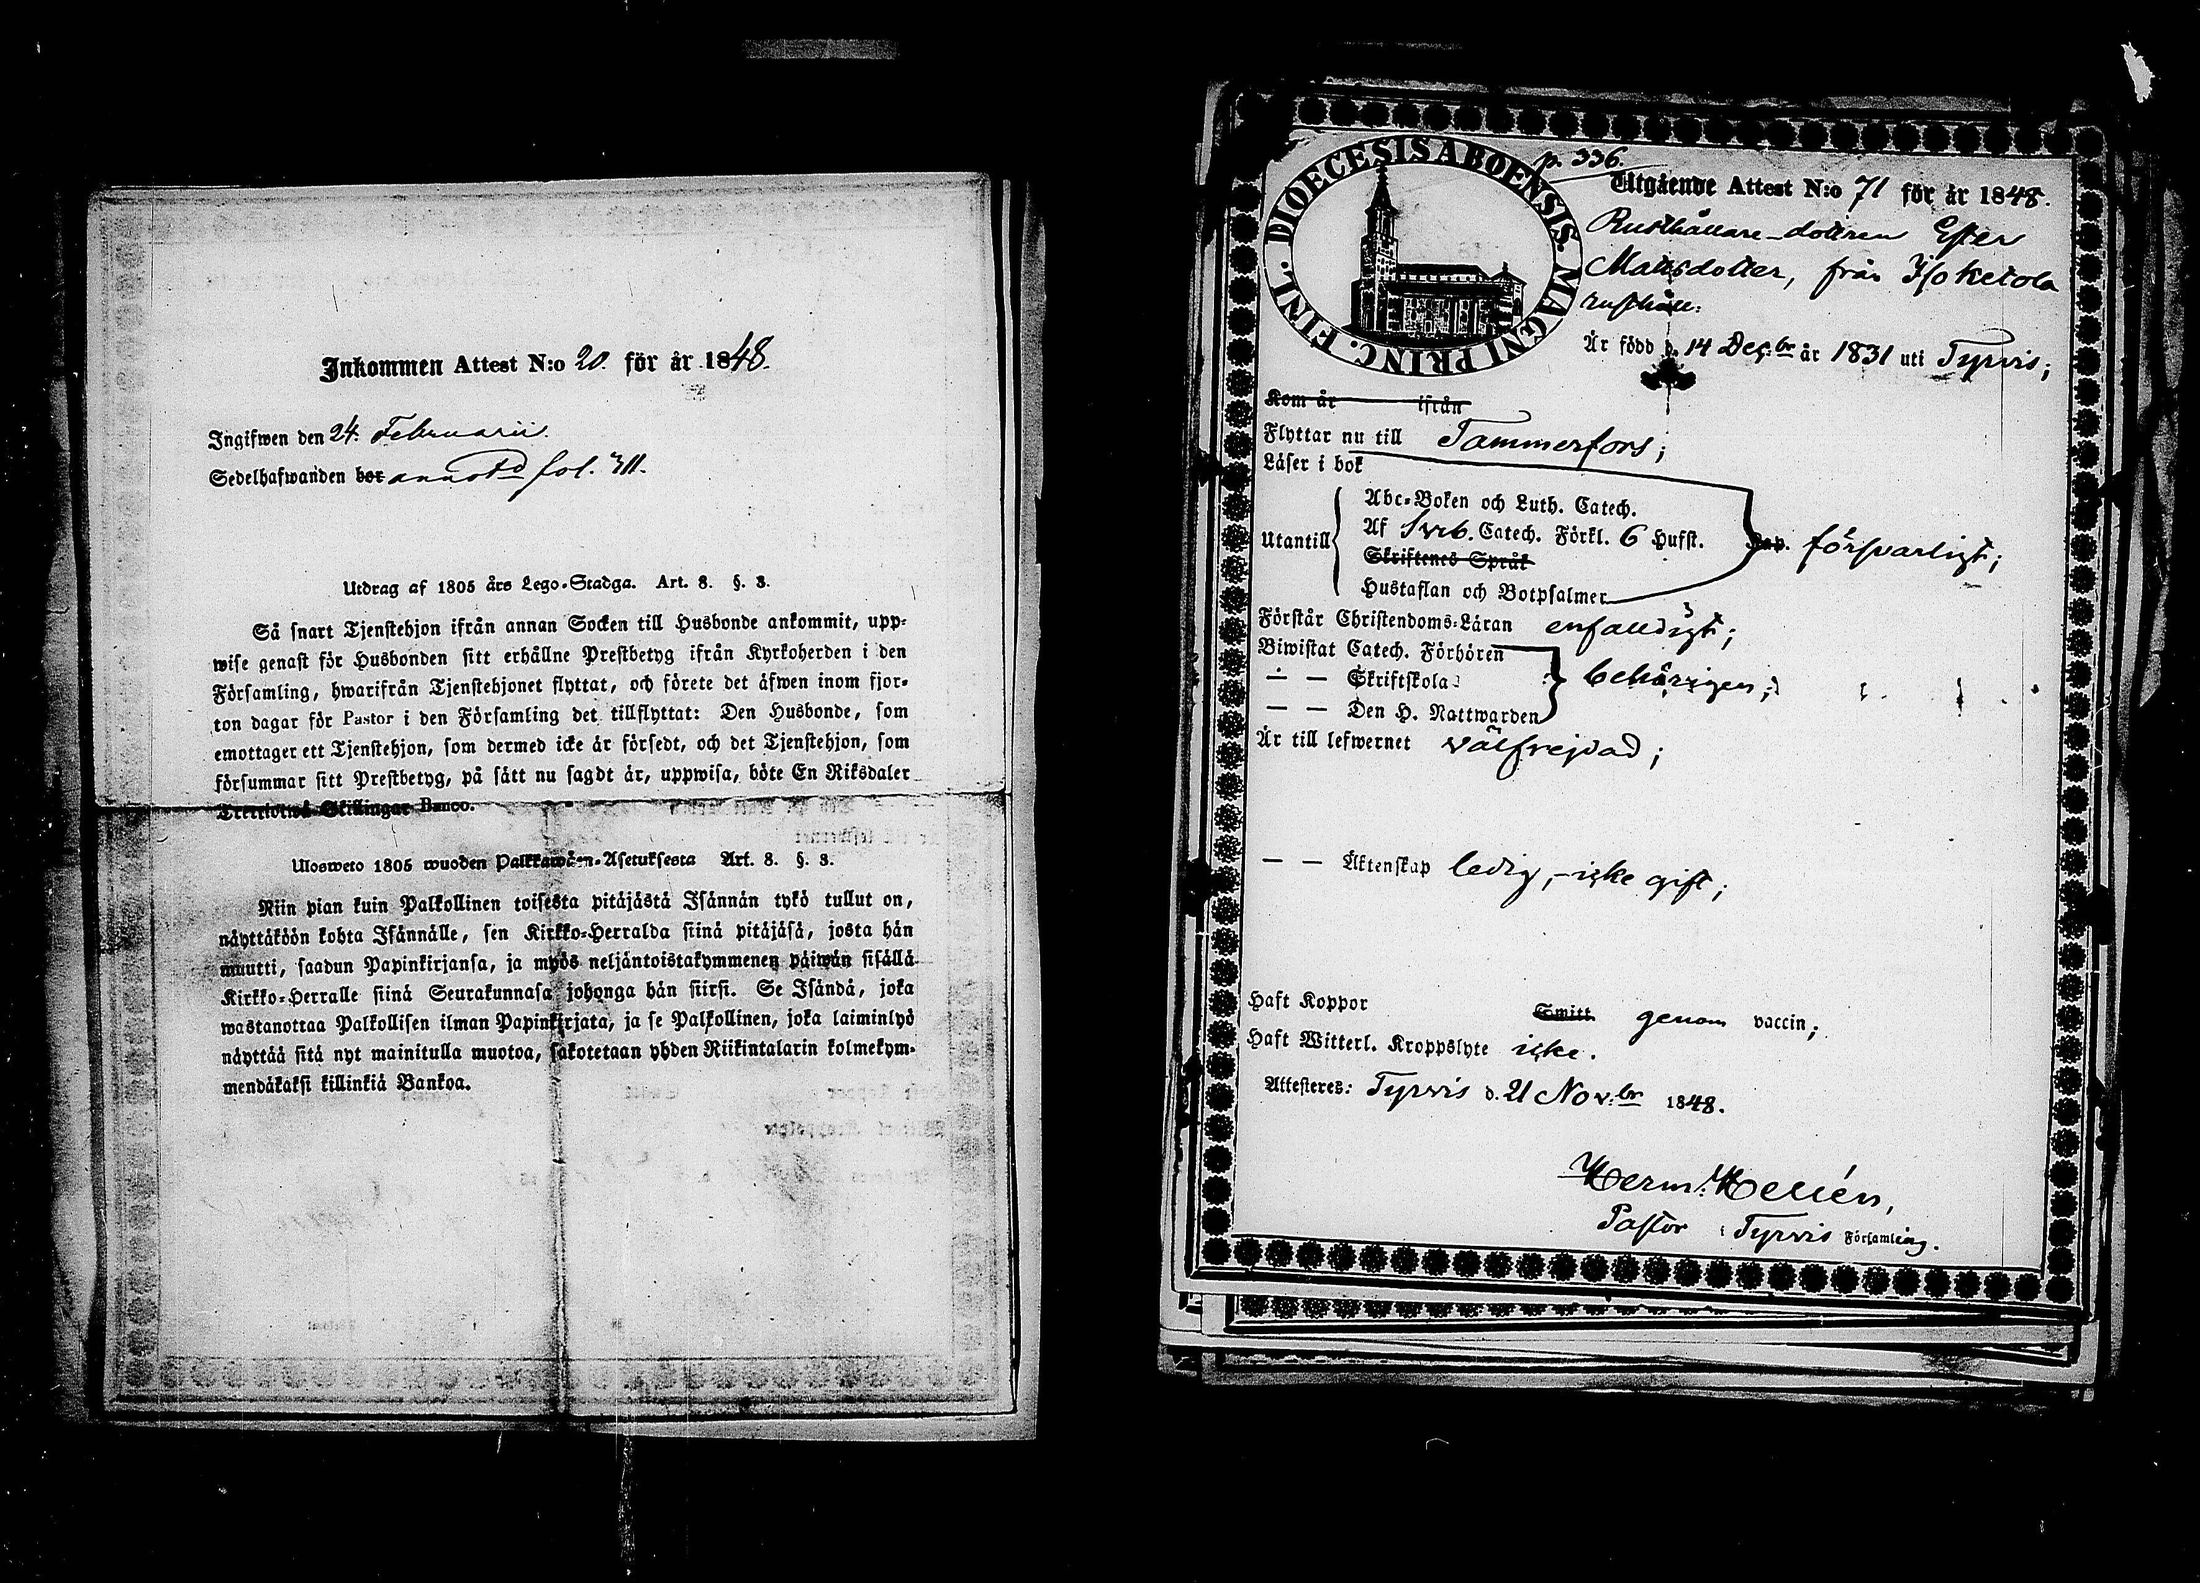 Inkommen Attest N:o 20. för år 1848.
Ingifwen den 24. Februarii.
Sedelhafwanden bor annotd fol. 311.
Utdrag af 1805 års Lego-Stadga. Art. 8. §. 3.
Så snart Tjenstehjon ifrån annan Socken till Husbonde ankommit, upp-
wise genast för Husbonden sitt erhållne Prestbetyg ifrån Kyrkoherden i den
Församling, hwarifrån Tjenstehjonet flyttat, och förete det äfwen inom fjor-
ton dagar för Pastor i den Församling det tillflyttat: Den Husbonde, som
emottager ett Tjenstehjon, som dermed icke är försedt, och det Tjenstehjon, som
försummar sitt Prestbetyg, på sätt nu sagdt är, uppwisa, böte En Riksdaler
Trettiotwå Skillingar Banco.
Ulosweto 1805 wuoden Palkkawäen-Asetuksesta Art. 8. §. 3.
Niin pian kuin Palkollinen toisesta pitäjästä Isännän tykö tullut on,
näyttäköön kohta Isännälle, sen Kirkko-Herralda siinä pitäjäsä, josta hän
muutti, saadun Papinkirjansa, ja myös neljäntoistakymmenen päiwän sisällä
Kirkko-Herralle siinä Seurakunnasa johonga hän siirsi. Se Isändä, joka
wastanottaa Palkollisen ilman Papinkirjata, ja se Palkollinen, joka laiminlyö
näyttää sitä nyt mainitulla muotoa, sakotetaan yhden Riikintalarin kolmekym-
mendäkaksi killinkiä Bankoa.
DIOECESIS ABOENSIS. MAGNI PRINC. FINL.
p. 336.
Utgående Attest N:o 71 för år 1848.
Rusthållare-dottren Ester
Mattsdotter, från Isoketola
rusthåll.
Är född d. 14 Dec:br år 1831 uti Tyrvis;
Kom år ifrån
Flyttar nu till Tammerfors;
Läser i bok
Abc-Boken och Luth. Catech.
Utantill Af Sveb. Catech. Förkl. 6 Hufst. försvarligt;
Skriftenes Språk
Hustaflan och Botpsalmer
Förstår Christendoms-Läran enfaldigt;
Biwistat Catech. Förhören
— — Skriftskola behörigen;
— — Den H. Nattwarden
Är till lefwernet välfrejdad;
— — Äktenskap ledig, icke gift;
Haft Koppor Smitt genom vaccin;
Haft Witterl. Kroppslyte icke.
Attesteres: Tyrvis d. 21 Nov:br 1848.
Herm: Hellén,
Pastor i Tyrvis Församling.